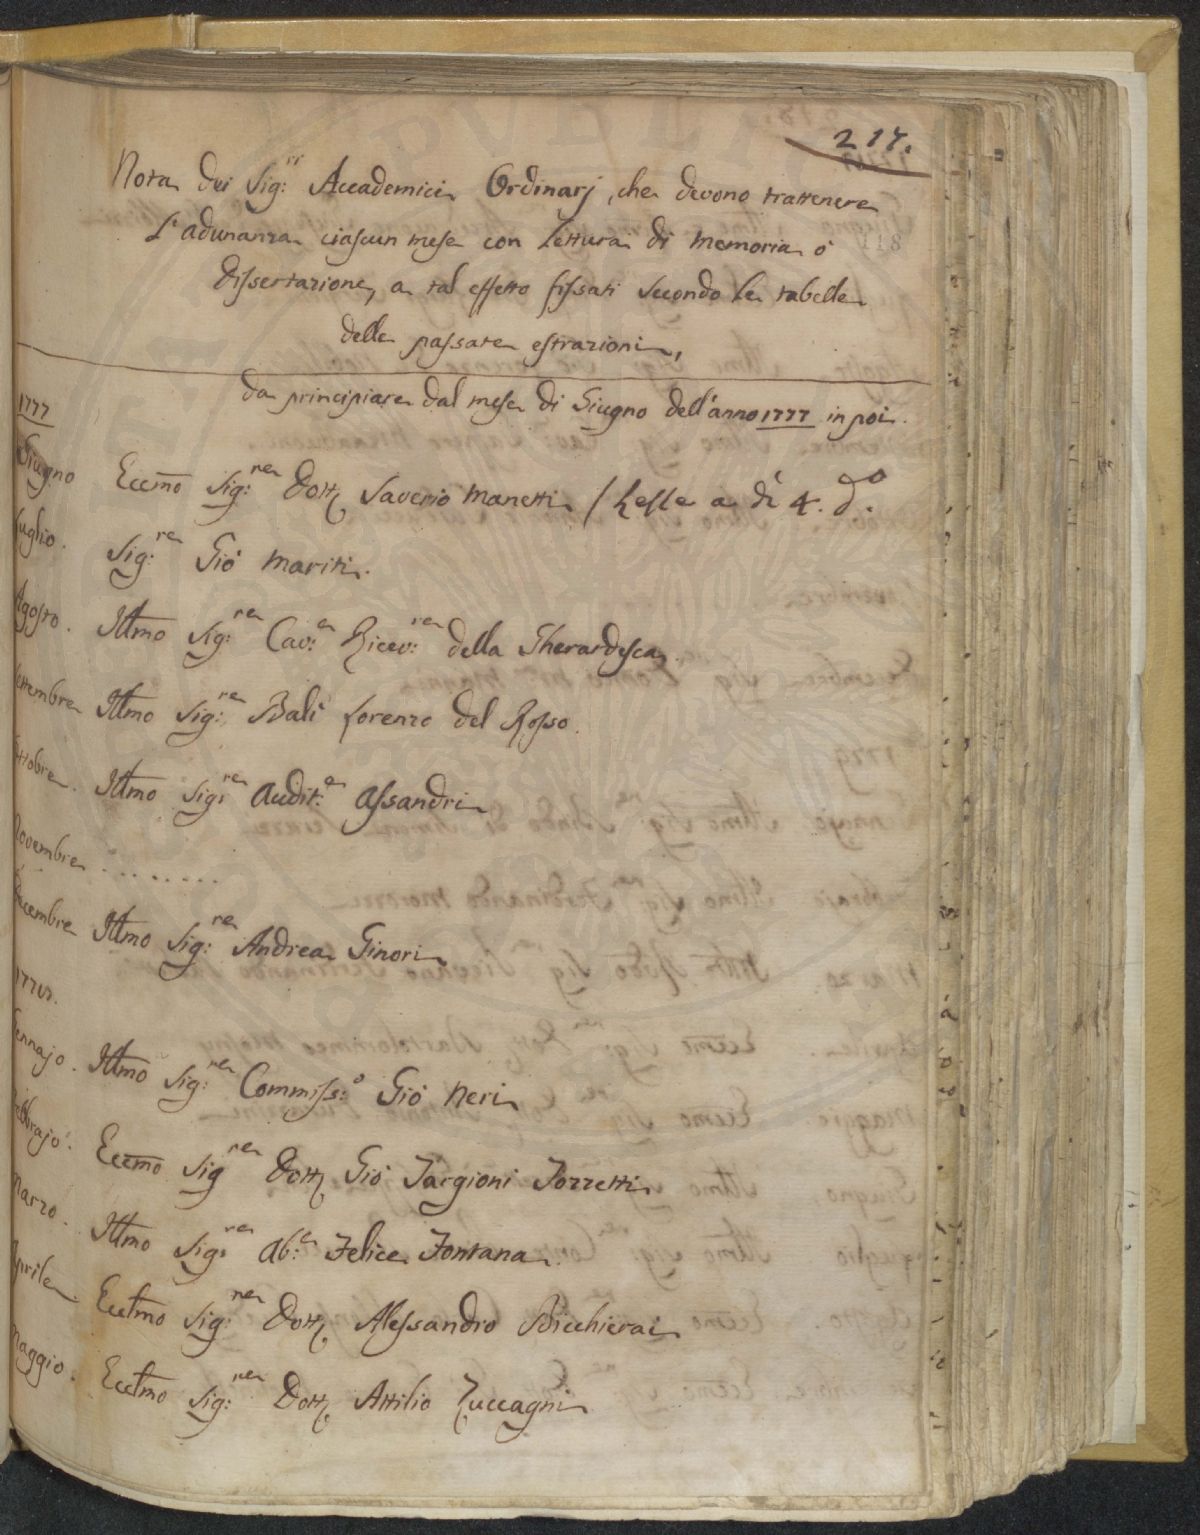 217.
118
Nota dei Sig:ri Accademici Ordinarj, che devono trattenere
L'adunanza ciascun mese con Lettura di memoria ò
Dissertazione, a tal effetto fissati secondo le tabelle
delle passate estrazioni,
da principiare dal mese di Giugno dell'anno 1777 in poi.
1777
Giugno Eccmo Sig:re Dott Saverio Manetti / Lesse a dì 4. do.
Luglio. Sig:re Gio Mariti.
Agosto. Illmo Sig:re Cav:e Ricev:re della Gherardesca.
Settembre Illmo Sig:re Balì Lorenzo del Rosso.
Ottobre. Illmo Sig:re Audit:e Assandri
Novembre .........
Decembre Illmo Sig:re Andrea Ginori
Gennajo. Illmo Sig:re Commiss:o Gio Neri
Febbrajo. Eccmo Sig:re Dott Gio Targioni Tozzetti
Marzo. Illmo Sig:re Ab:e Felice Fontana.
Aprile. Eccellmo Sig:re Dott Alessandro Bicchierai
Maggio. Eccellmo Sig:re Dott Attilio Zuccagni